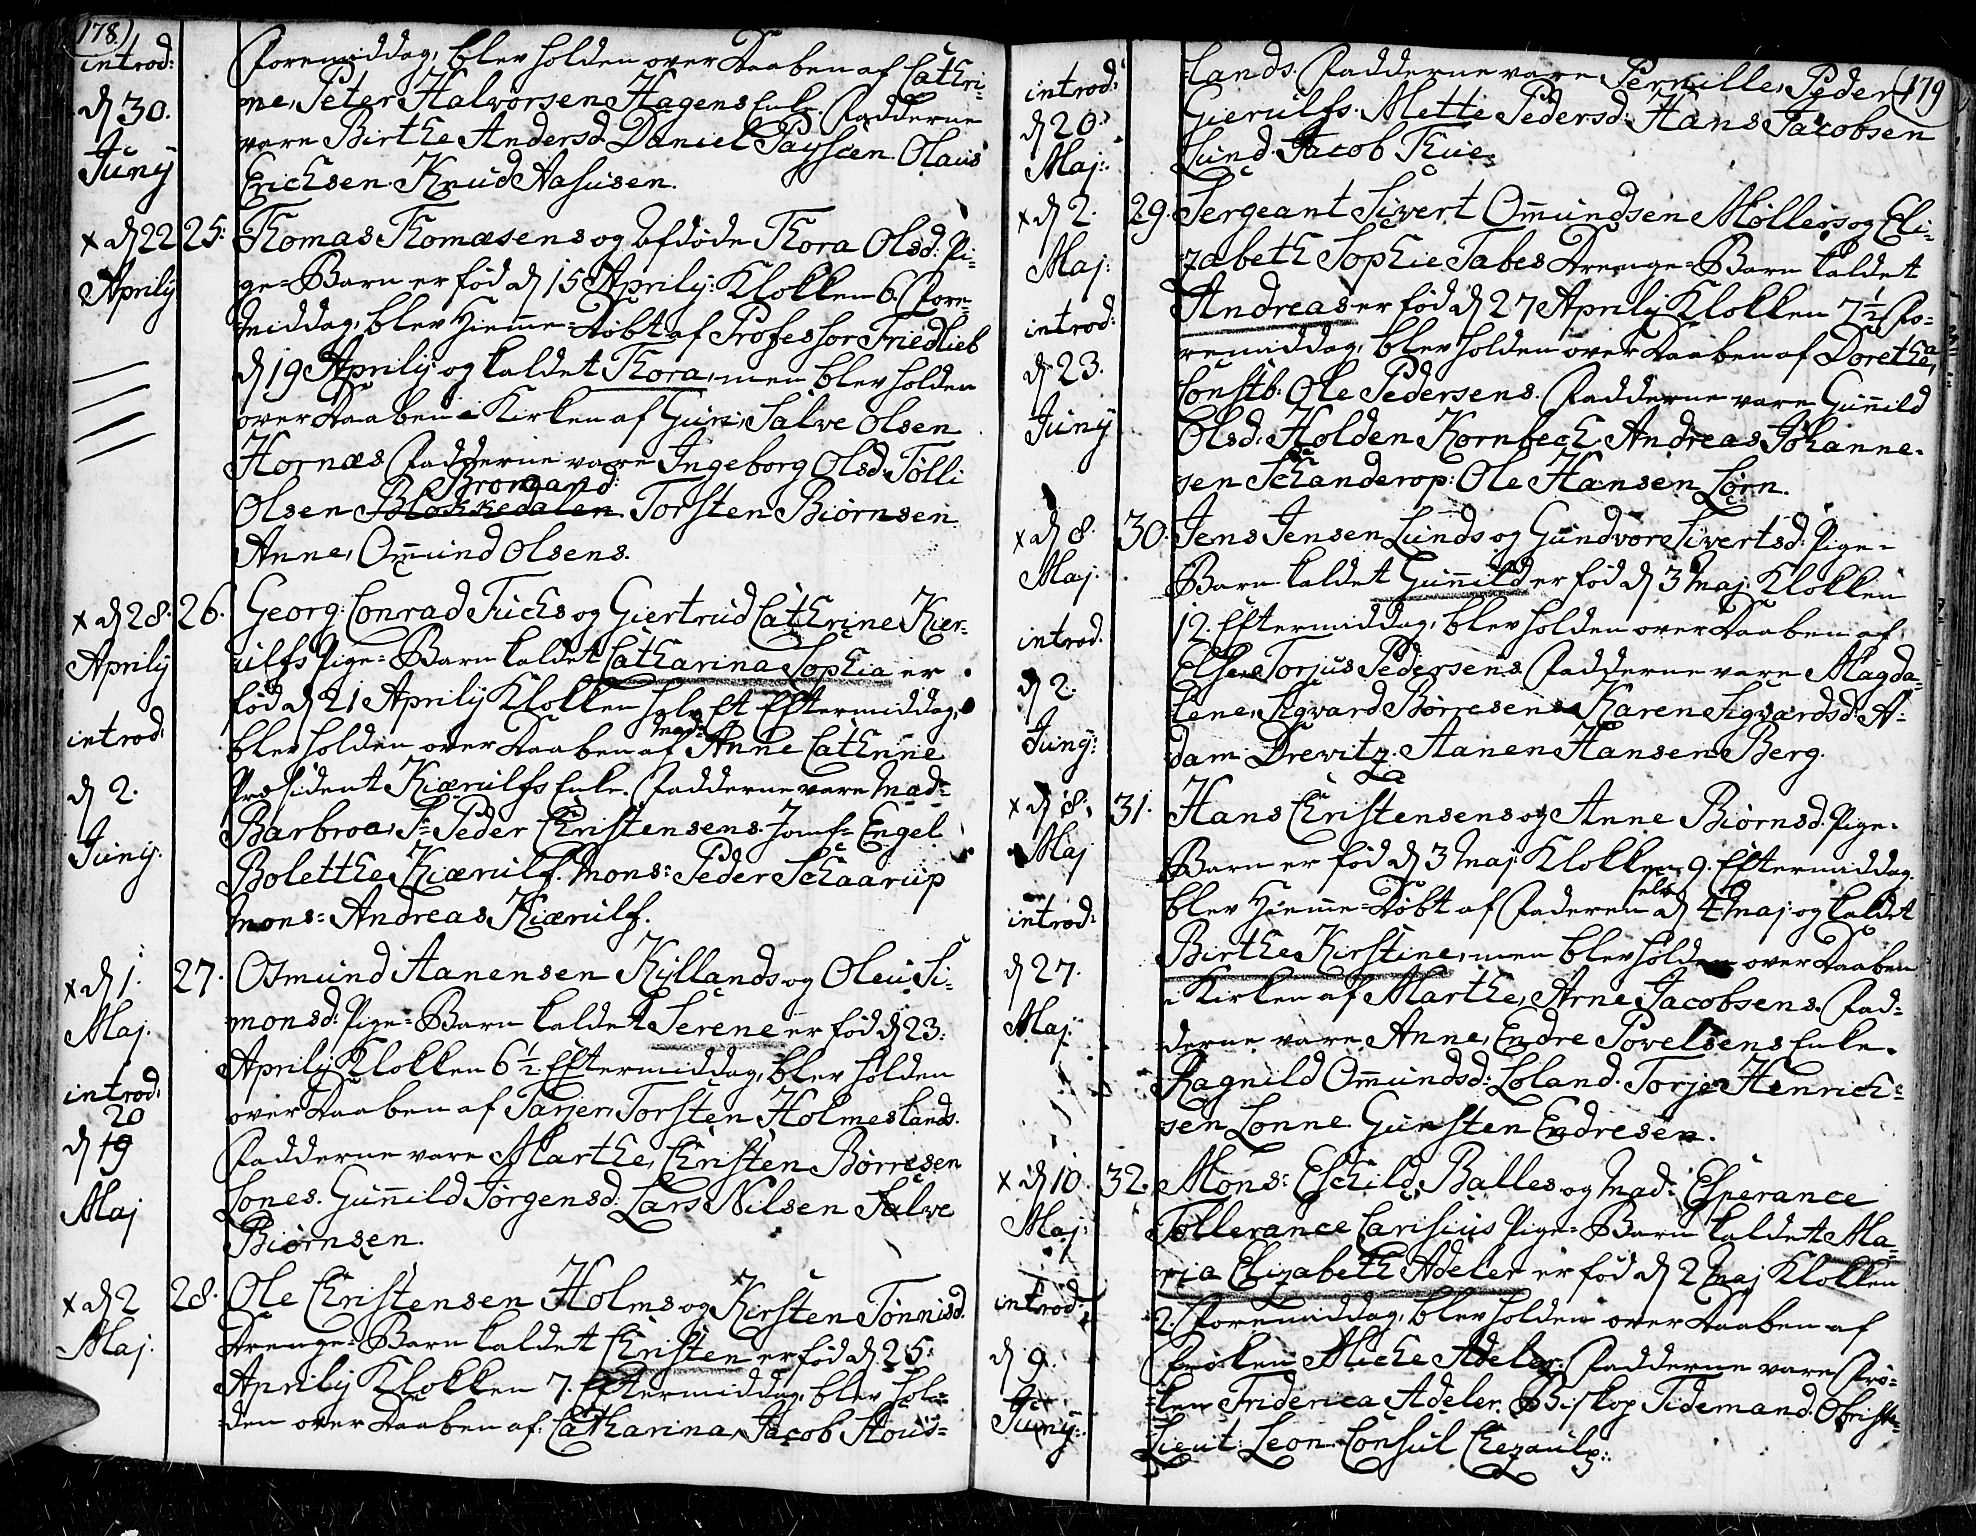 178)
introd:
d 30.
Junÿ
Foremiddag, blev holden over Daaben af Cathri-
ne, Peter Halvorsen Hagens Enke. Fadderne
vare Birthe Andersd. Daniel Olaus
Erichsen. Knud Aasusen.
x d 22 25:
Aprilÿ
Thomas Thomæsens og Afdøde Thora Olsd: Pi-
ge-Barn er fød d 15 Aprilÿ: Klokken 6. Fore-
middag, blev Hiemme-Døbt af Professor Friedlieb
d 19 Aprilÿ og kaldet Thora, men blev holden
over Daaben i Kirken af Guri, Salve Olsen
Hornæs Fadderne vare Ingeborg Olsd. Tølli
Olsen Torsten Biørnsen
Anne, Omund Olsens.
x d 28. 26.
Aprilÿ
introd:
d 2.
Junÿ.
Georg: Conrad Fuchs og Giertrud Cathrine Kier-
ulfs Pige-Barn kaldet Catharina Sophia er
fød d 21 Aprilÿ Klokken halv Et Eftermiddag,
blev holden over Daaben af Mad: Anne Cathrine
Præsident Kiærulfs Enke. Fadderne vare Mad:
Barbroa, Sr Peder Christensens. Jomf: Engel
Bolethe Kiærulf. Mons: Peder Schaarup
Mons: Andreas Kiærulf.
x d 1. 27.
Maj.
introd:
20
d 19
Maj
Osmund Aanensen Kyllands og Oleu Si-
monsd: Pige-Barn kaldet Serene er fød d 23:
Aprilÿ Klokken 6½ Eftermiddag, blev holden
over Daaben af Tarjer, Torsten Holmeslands.
Fadderne vare Marthe, Christen Børresen
Lones. Gunnild Jørgensd: Lars Nilsen Salve
Biørnsen.
x d 2 28.
Maj.
Ole Christensen Holms og Kirsten Tønnisd.
Drenge-Barn kaldet Christen er fød d 25:
Aprilÿ Klokken 7. Eftermiddag, blev hol-
den over Daaben af: Catharina, Jacob Stous-
179
introd:
d 20.
Maj:
lands. Fadderne vare Pernille, Peder
Gierulfs. Mette Pedersd: Hans Jacobsen
Lund. Jacob Thue.
x d 2. 29.
Maj:
introd:
d 23.
Junÿ
Sergeant Sivert Omundsen Møllers og Eli-
zabeth Sophie Tabes Drenge-Barn kaldet
Andreas er fød d 27 Aprilÿ Klokken 7½ Fo-
remiddag, blev holden over Daaben af Dorethea,
Constb: Ole Pedersens. Fadderne vare Gunild
Olsd. Holden Kornbech. Andreas Johanne-
sen Schanderop: Ole Hansen Lørn.
x d 8. 30.
Maj.
introd.
d 2.
Junÿ:
Jens Jensen Lunds og Gundvore Sivertsd: Pige-
Barn kaldet Gunnild er fød d 3 Maj Klokken
12. Eftermiddag, blev holden over Daaben af
Else, Torjus Pedersens. Fadderne vare Magda-
lene, Sigvard Børresens Karen Sigvardsd: A-
dam Drevitz. Aanen Hansen Berg.
x d 8. 31.
Maj
introd:
d 27.
Maj:
Hans Christensens og Anne Biørnsd. Pige-
Barn er fød d 3 Maj Klokken 9. Eftermiddag.
blev Hiemme-Døbt af Faderen selv d 4 Maj og kaldet
Birthe Kirstine, men blev holden over Daaben
i Kirken af Marthe, Arne Jacobsens. Fad-
derne vare Anne, Endre Povelsens Enke.
Ragnild Omundsd: Loland. Torje Henrich-
sen Lonne. Gunsten Endresen.
x d 10. 32.
Maj:
introd:
d 9.
Junÿ:
Mons: Eschild Balles og Mad: Esperance
Tollerance Carisius Pige-Barn kaldet Ma-
ria Elizabeth Adeler er fød d 2 Maj Klokken
2. Foremiddag, blev holden over Daaben af
Frøken Miche Adeler. Fadderne vare Frø-
ken Friderica Adeler. Biskop Tidemand. Obriste-
Lieut: Leon. Consul